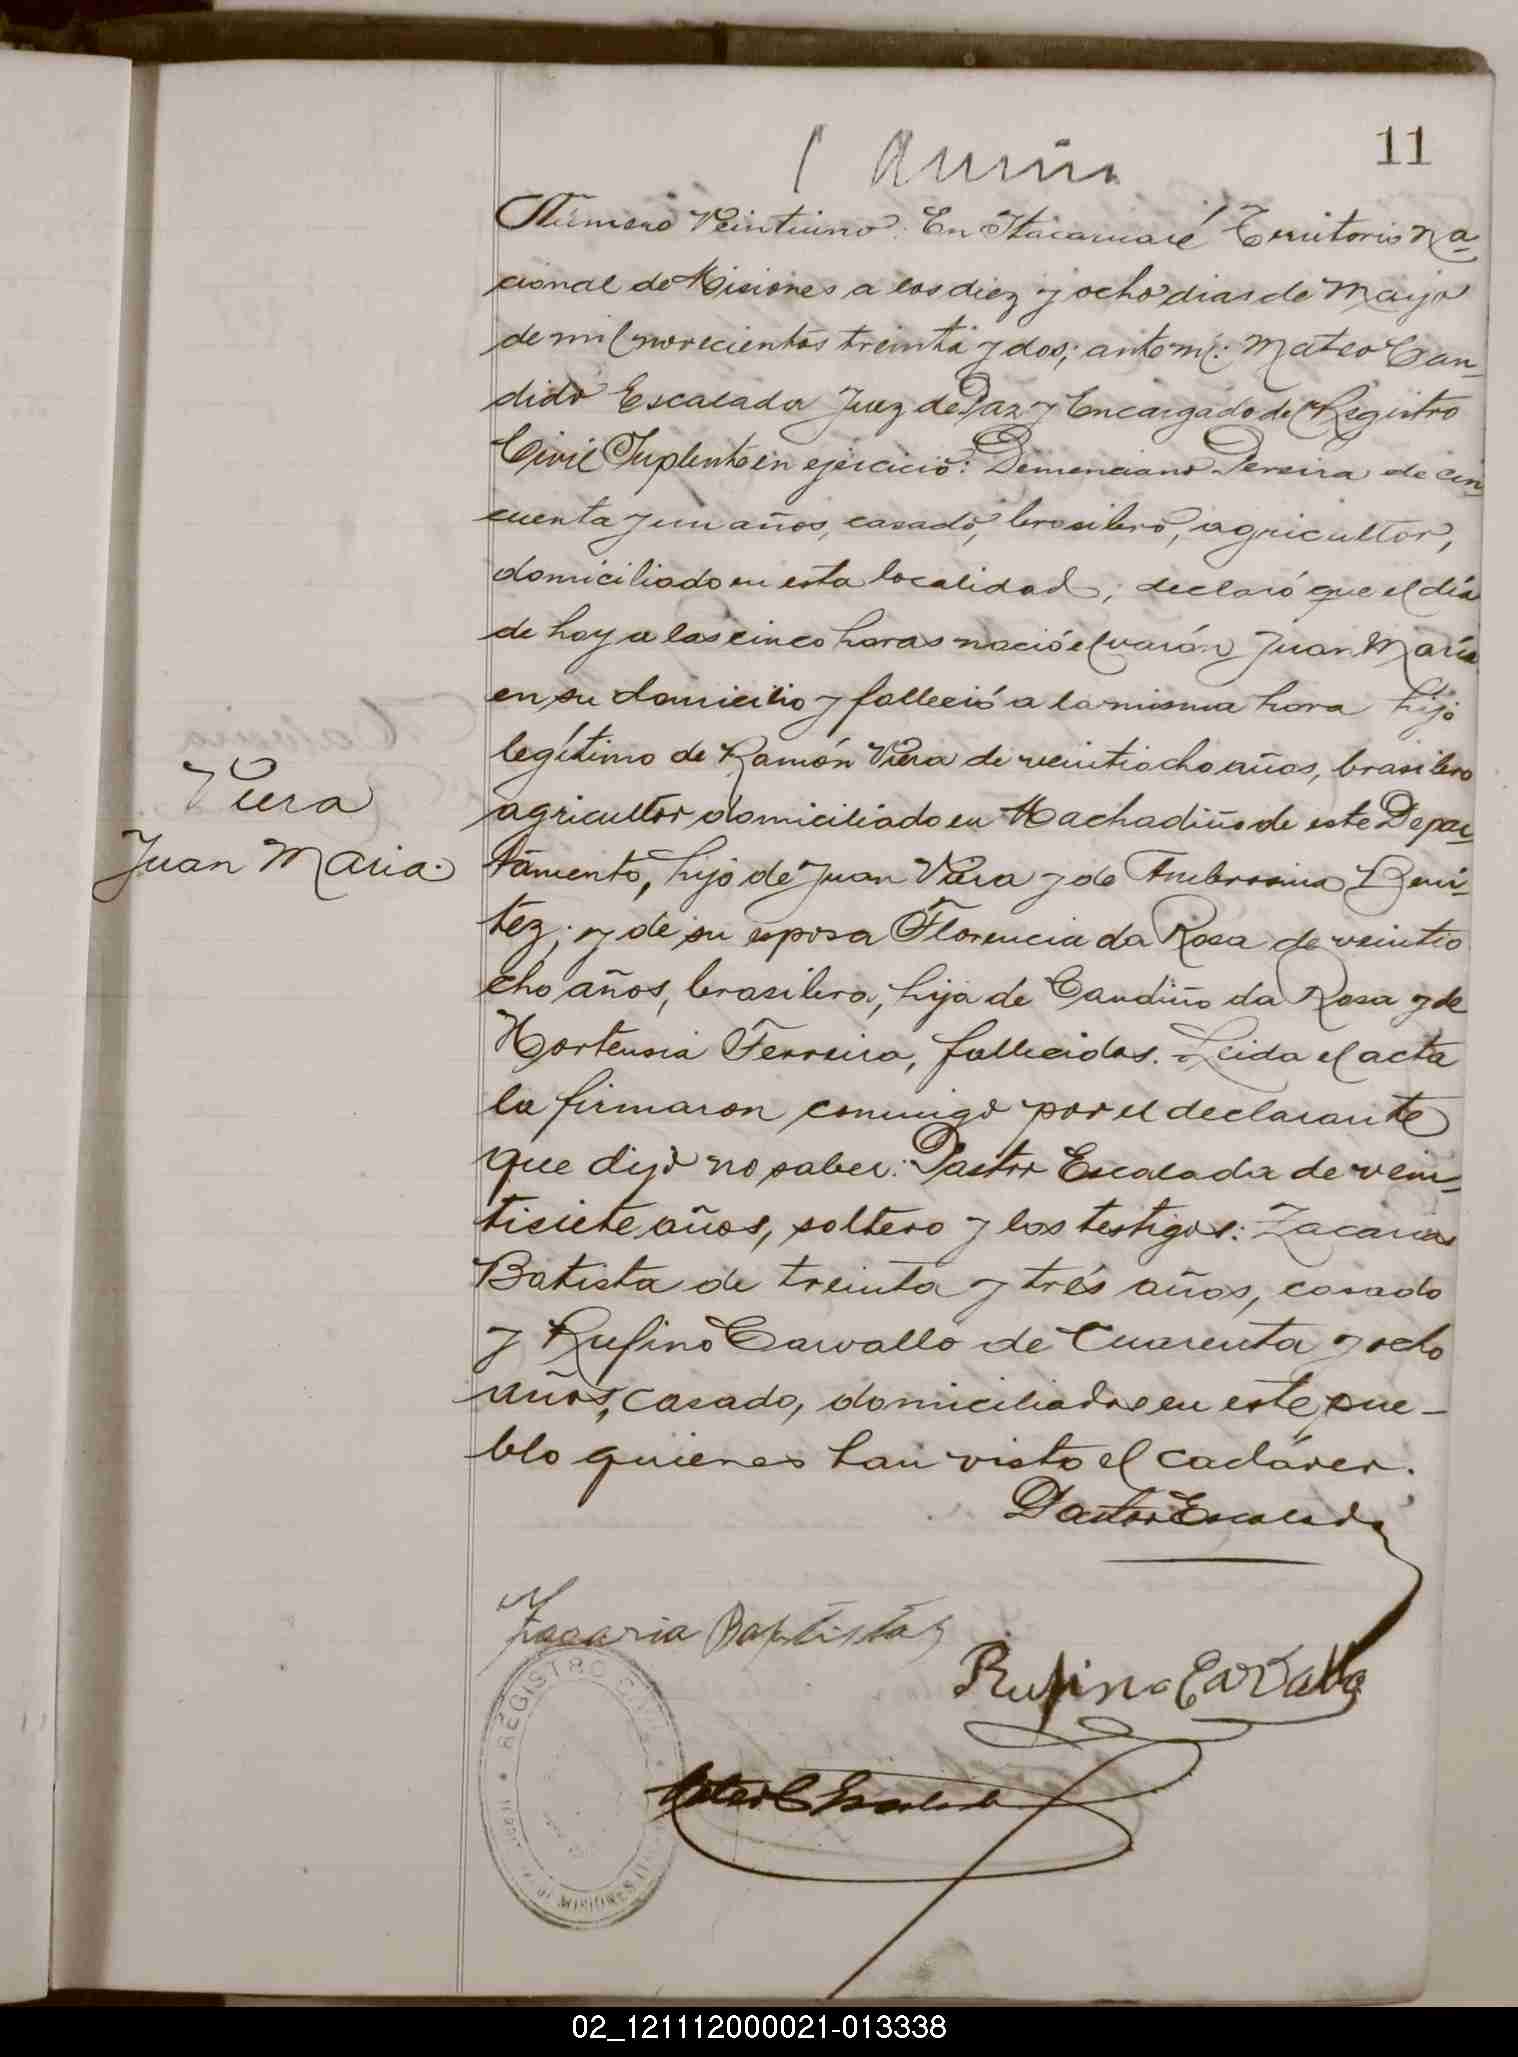 11
Número Veintiuno: En Itacaruaré Territorio Na-
cional de Misiones a los diez y ocho dias de Mayo
de mil novecientos treinta y dos; ante mí: Mateo Can-
dido Escalada Juez de Paz y Encargado del Registro
Civil Suplente en ejercicio: Demenciano Pereira de cin-
cuenta y un años, casado, brasilero, agricultor,
domiciliado en esta localidad, declaró que el día
de hoy a las cinco horas nació el varón Juan María
en su domicilio y falleció a la misma hora hijo
legítimo de Ramón Viera de veintiocho años, brasilero
Viera
Juan Maria.
agricultor domiciliado en Machadiño de este Depar-
tamento, hijo de Juan Viera y de Ambrosina Beni-
tez; y de su esposa Florencia da Rosa de veintio
cho años, brasilera, hija de Candiño da Rosa y de
Hortensia Ferreira, fallecidos. Leida el acta
la firmaron conmigo por el declarante
que dijo no saber: Pastor Escalada de vein-
tisiete años, soltero y los testigos: Zacarias
Batista de treinta y trés años, casado
y Rufino Carvallo de cuarenta y ocho
años, casado, domiciliados en este pue-
blo quienes han visto el cadáver.
Pastor Escalada
Zacaria Baptista
Rufino Carvallo
REGISTRO CIVIL
MISIONES
Mateo C Escalada
02_121112000021-013338